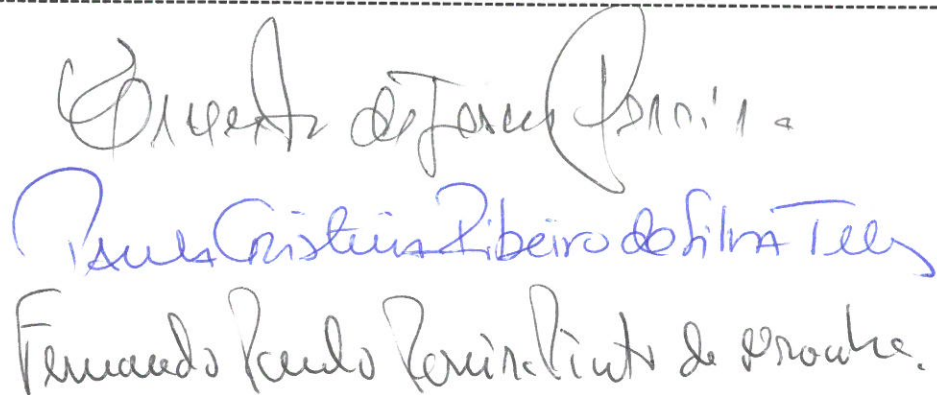 Ernesto de Jesus Pereira
Paula Cristina Ribeiro da Silva Teles
Fernando Paulo Pereira Pinto da